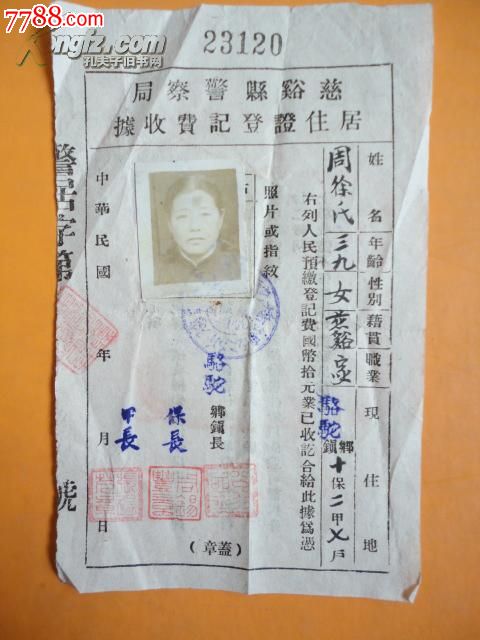 7788.com
Kongfz.com
孔夫子旧书网
23120
慈谿縣警察局
居住證登記費收據
姓名 年齡 性別 籍貫 職業 現住地
周徐氏 三九 女 慈谿 駱駝鄉鎮十保二甲七戶
右列人民預繳登記費國幣拾元業已收訖合給此據爲憑
照片或指紋
駱駝鄉鎮長
保長
甲長
(蓋章)
中華民國 年 月 日
警居字第 號